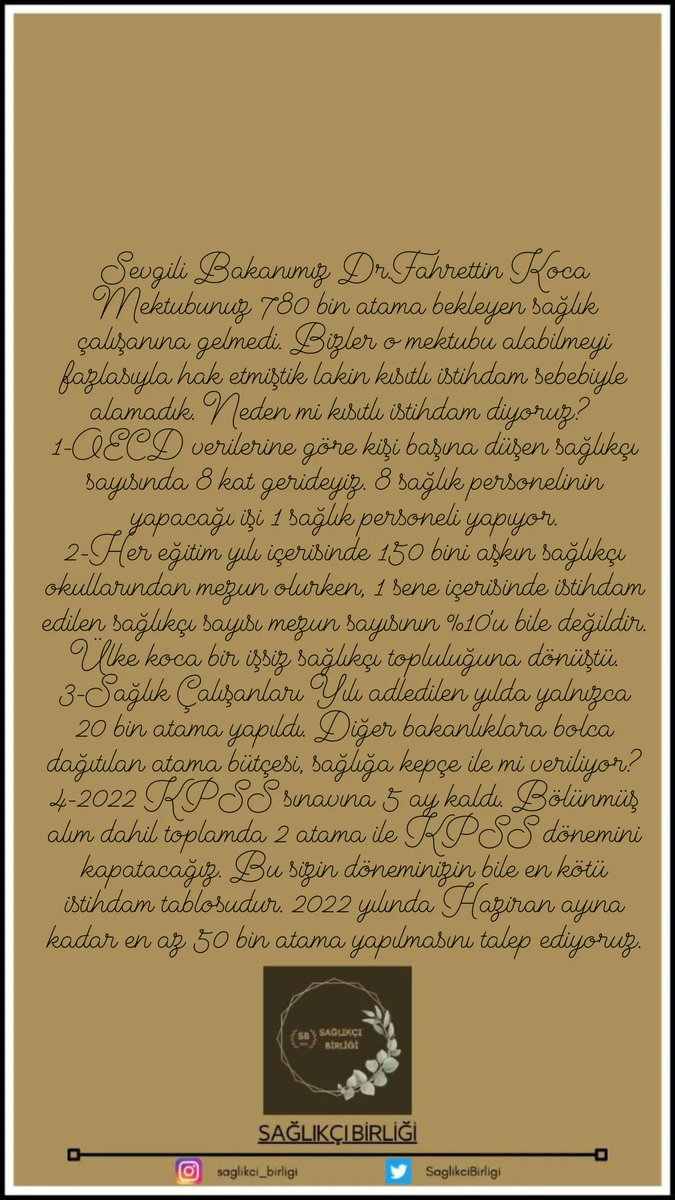 Sevgili Bakanımız Dr.Fahrettin Koca
Mektubunuz 780 bin atama bekleyen sağlık
çalışanına gelmedi. Bizler o mektubu alabilmeyi
fazlasıyla hak etmiştik lakin kısıtlı istihdam sebebiyle
alamadık. Neden mi kısıtlı istihdam diyoruz?
1-OECD verilerine göre kişi başına düşen sağlıkçı
sayısında 8 kat gerideyiz. 8 sağlık personelinin
yapacağı işi 1 sağlık personeli yapıyor.
2-Her eğitim yılı içerisinde 150 bini aşkın sağlıkçı
okullarından mezun olurken, 1 sene içerisinde istihdam
edilen sağlıkçı sayısı mezun sayısının %10'u bile değildir.
Ülke koca bir işsiz sağlıkçı topluluğuna dönüştü.
3-Sağlık Çalışanları Yılı adledilen yılda yalnızca
20 bin atama yapıldı. Diğer bakanlıklara bolca
dağıtılan atama bütçesi, sağlığa kepçe ile mi veriliyor?
4-2022 KPSS sınavına 5 ay kaldı. Bölünmüş
alım dahil toplamda 2 atama ile KPSS dönemini
kapatacağız. Bu sizin döneminizin bile en kötü
istihdam tablosudur. 2022 yılında Haziran ayına
kadar en az 50 bin atama yapılmasını talep ediyoruz.
SB
SAĞLIKÇI
BİRLİĞİ
SAĞLIKÇI BİRLİĞİ
saglikci_birligi
SaglikciBirligi